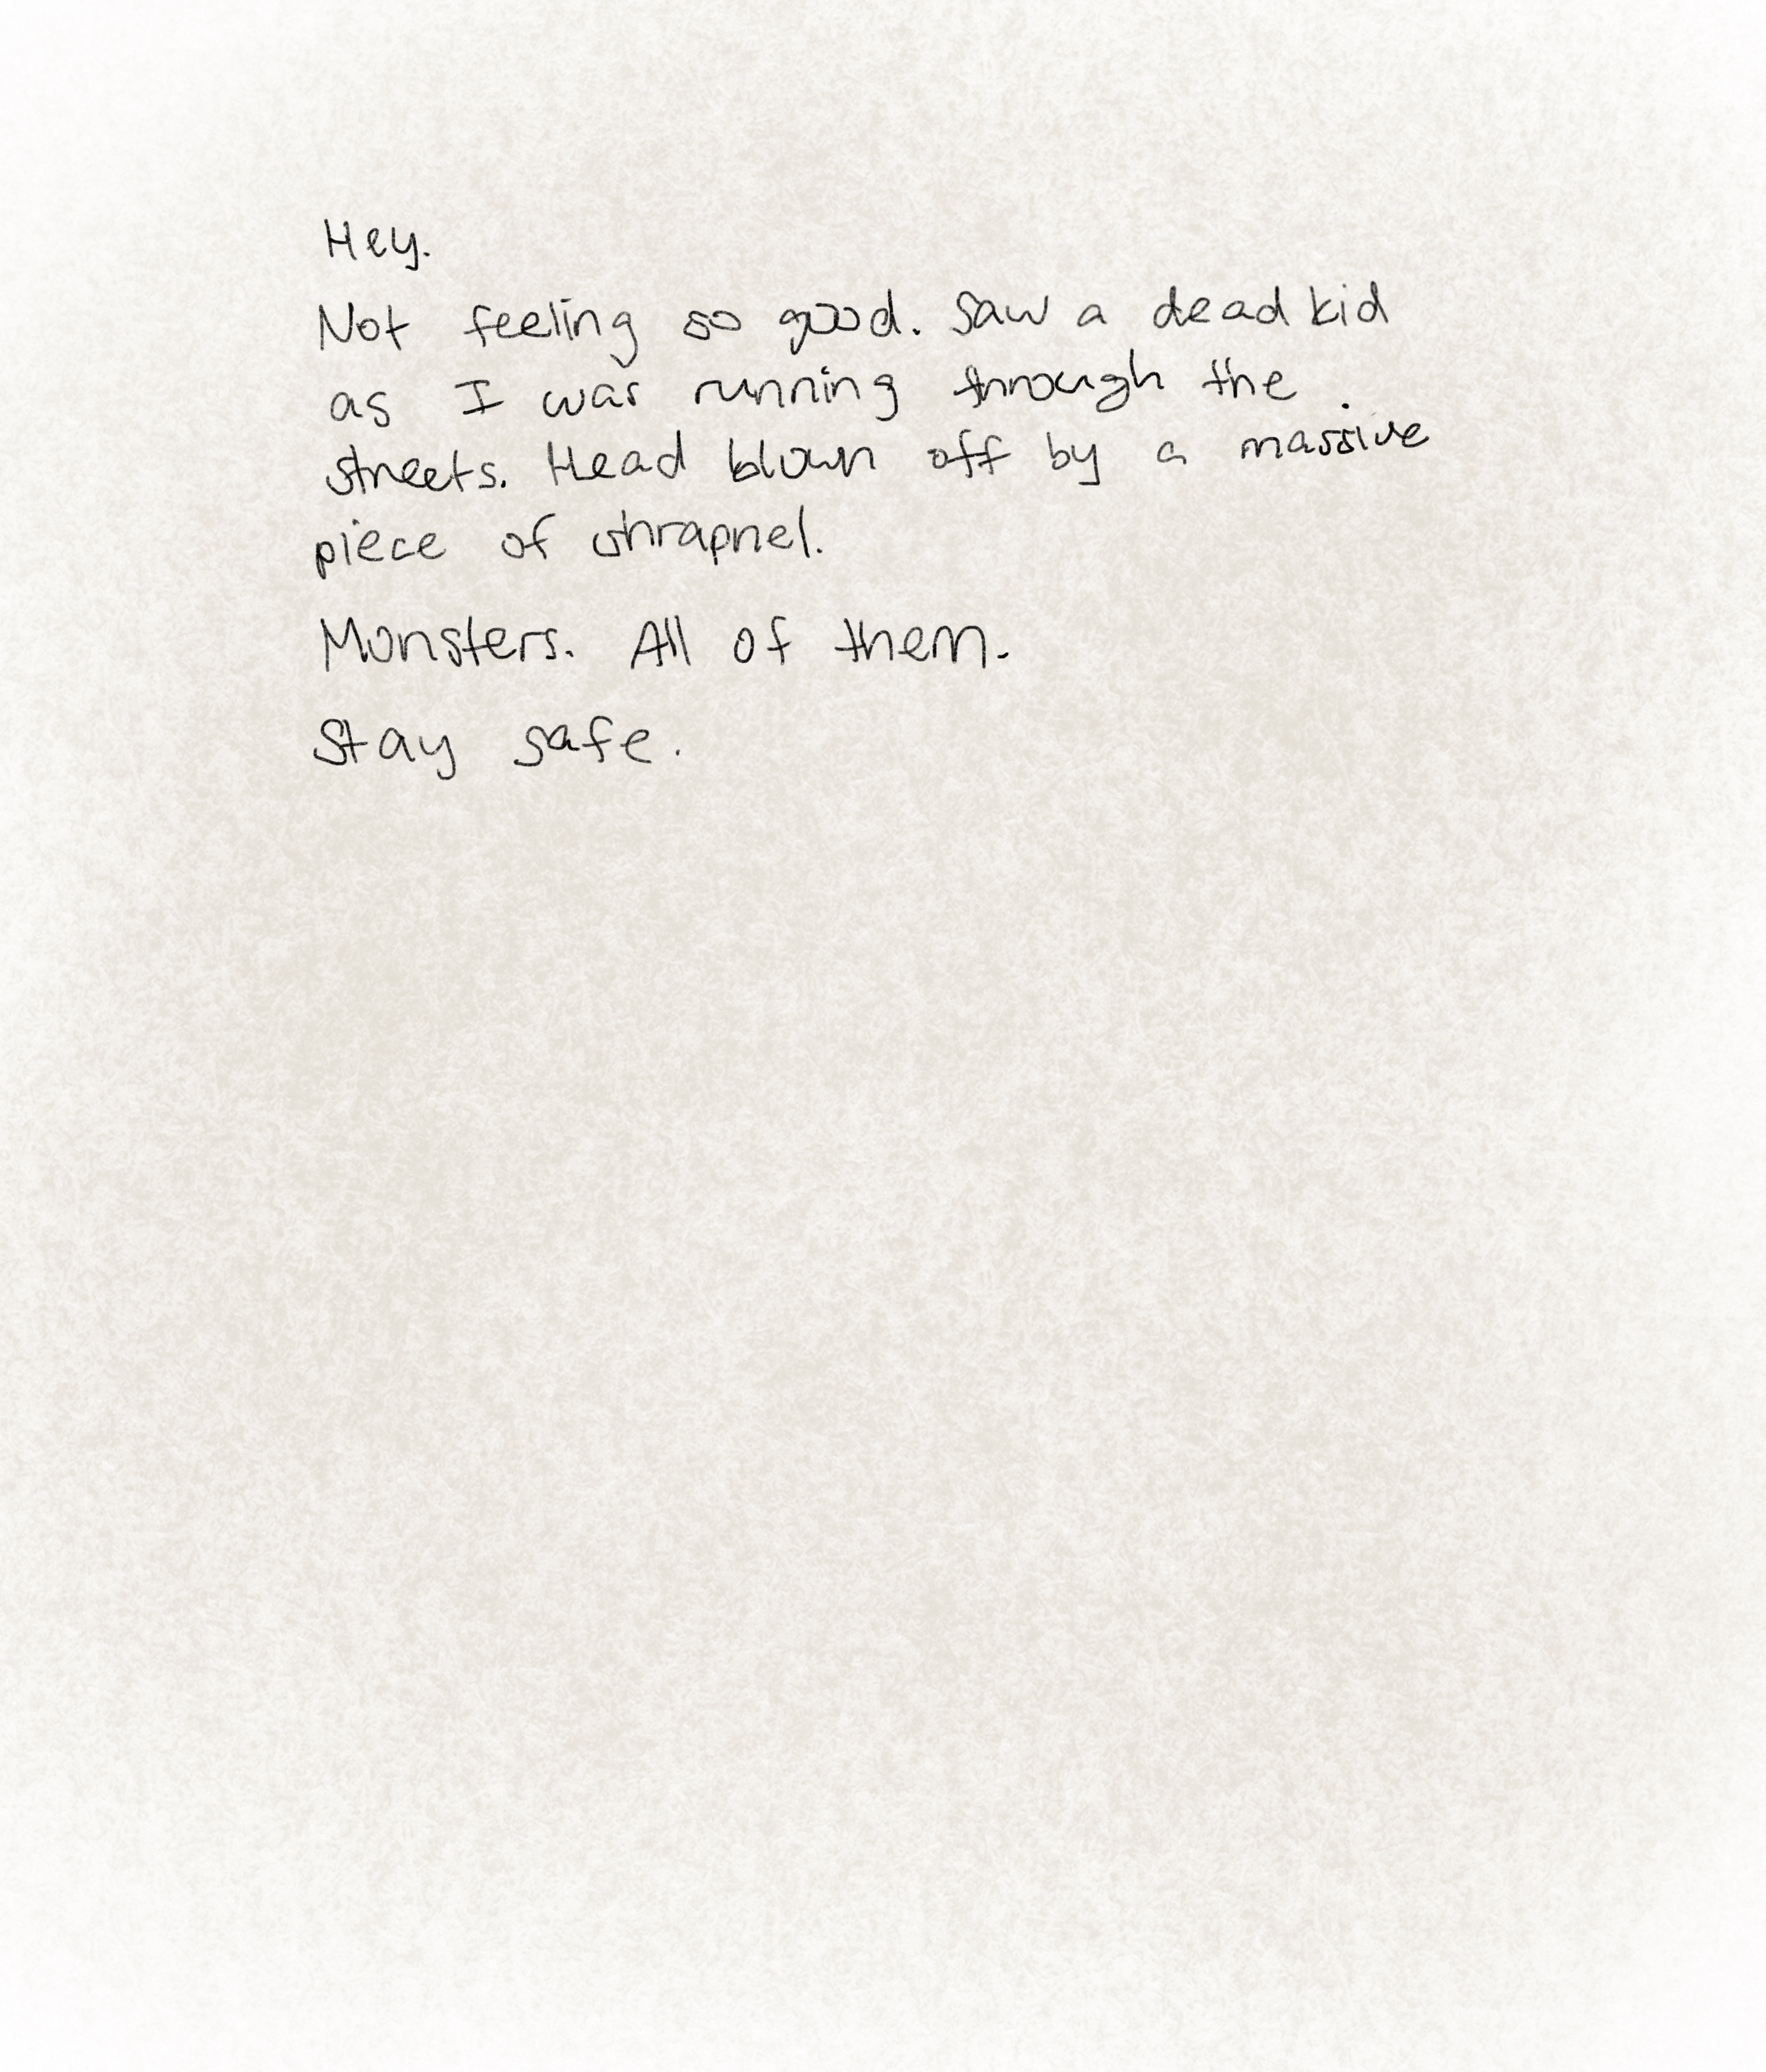 Hey.
Not feeling so good. Saw a dead kid
as I was running through the
streets. Head blown off by a massive
piece of shrapnel.
Monsters. All of them.
Stay safe.